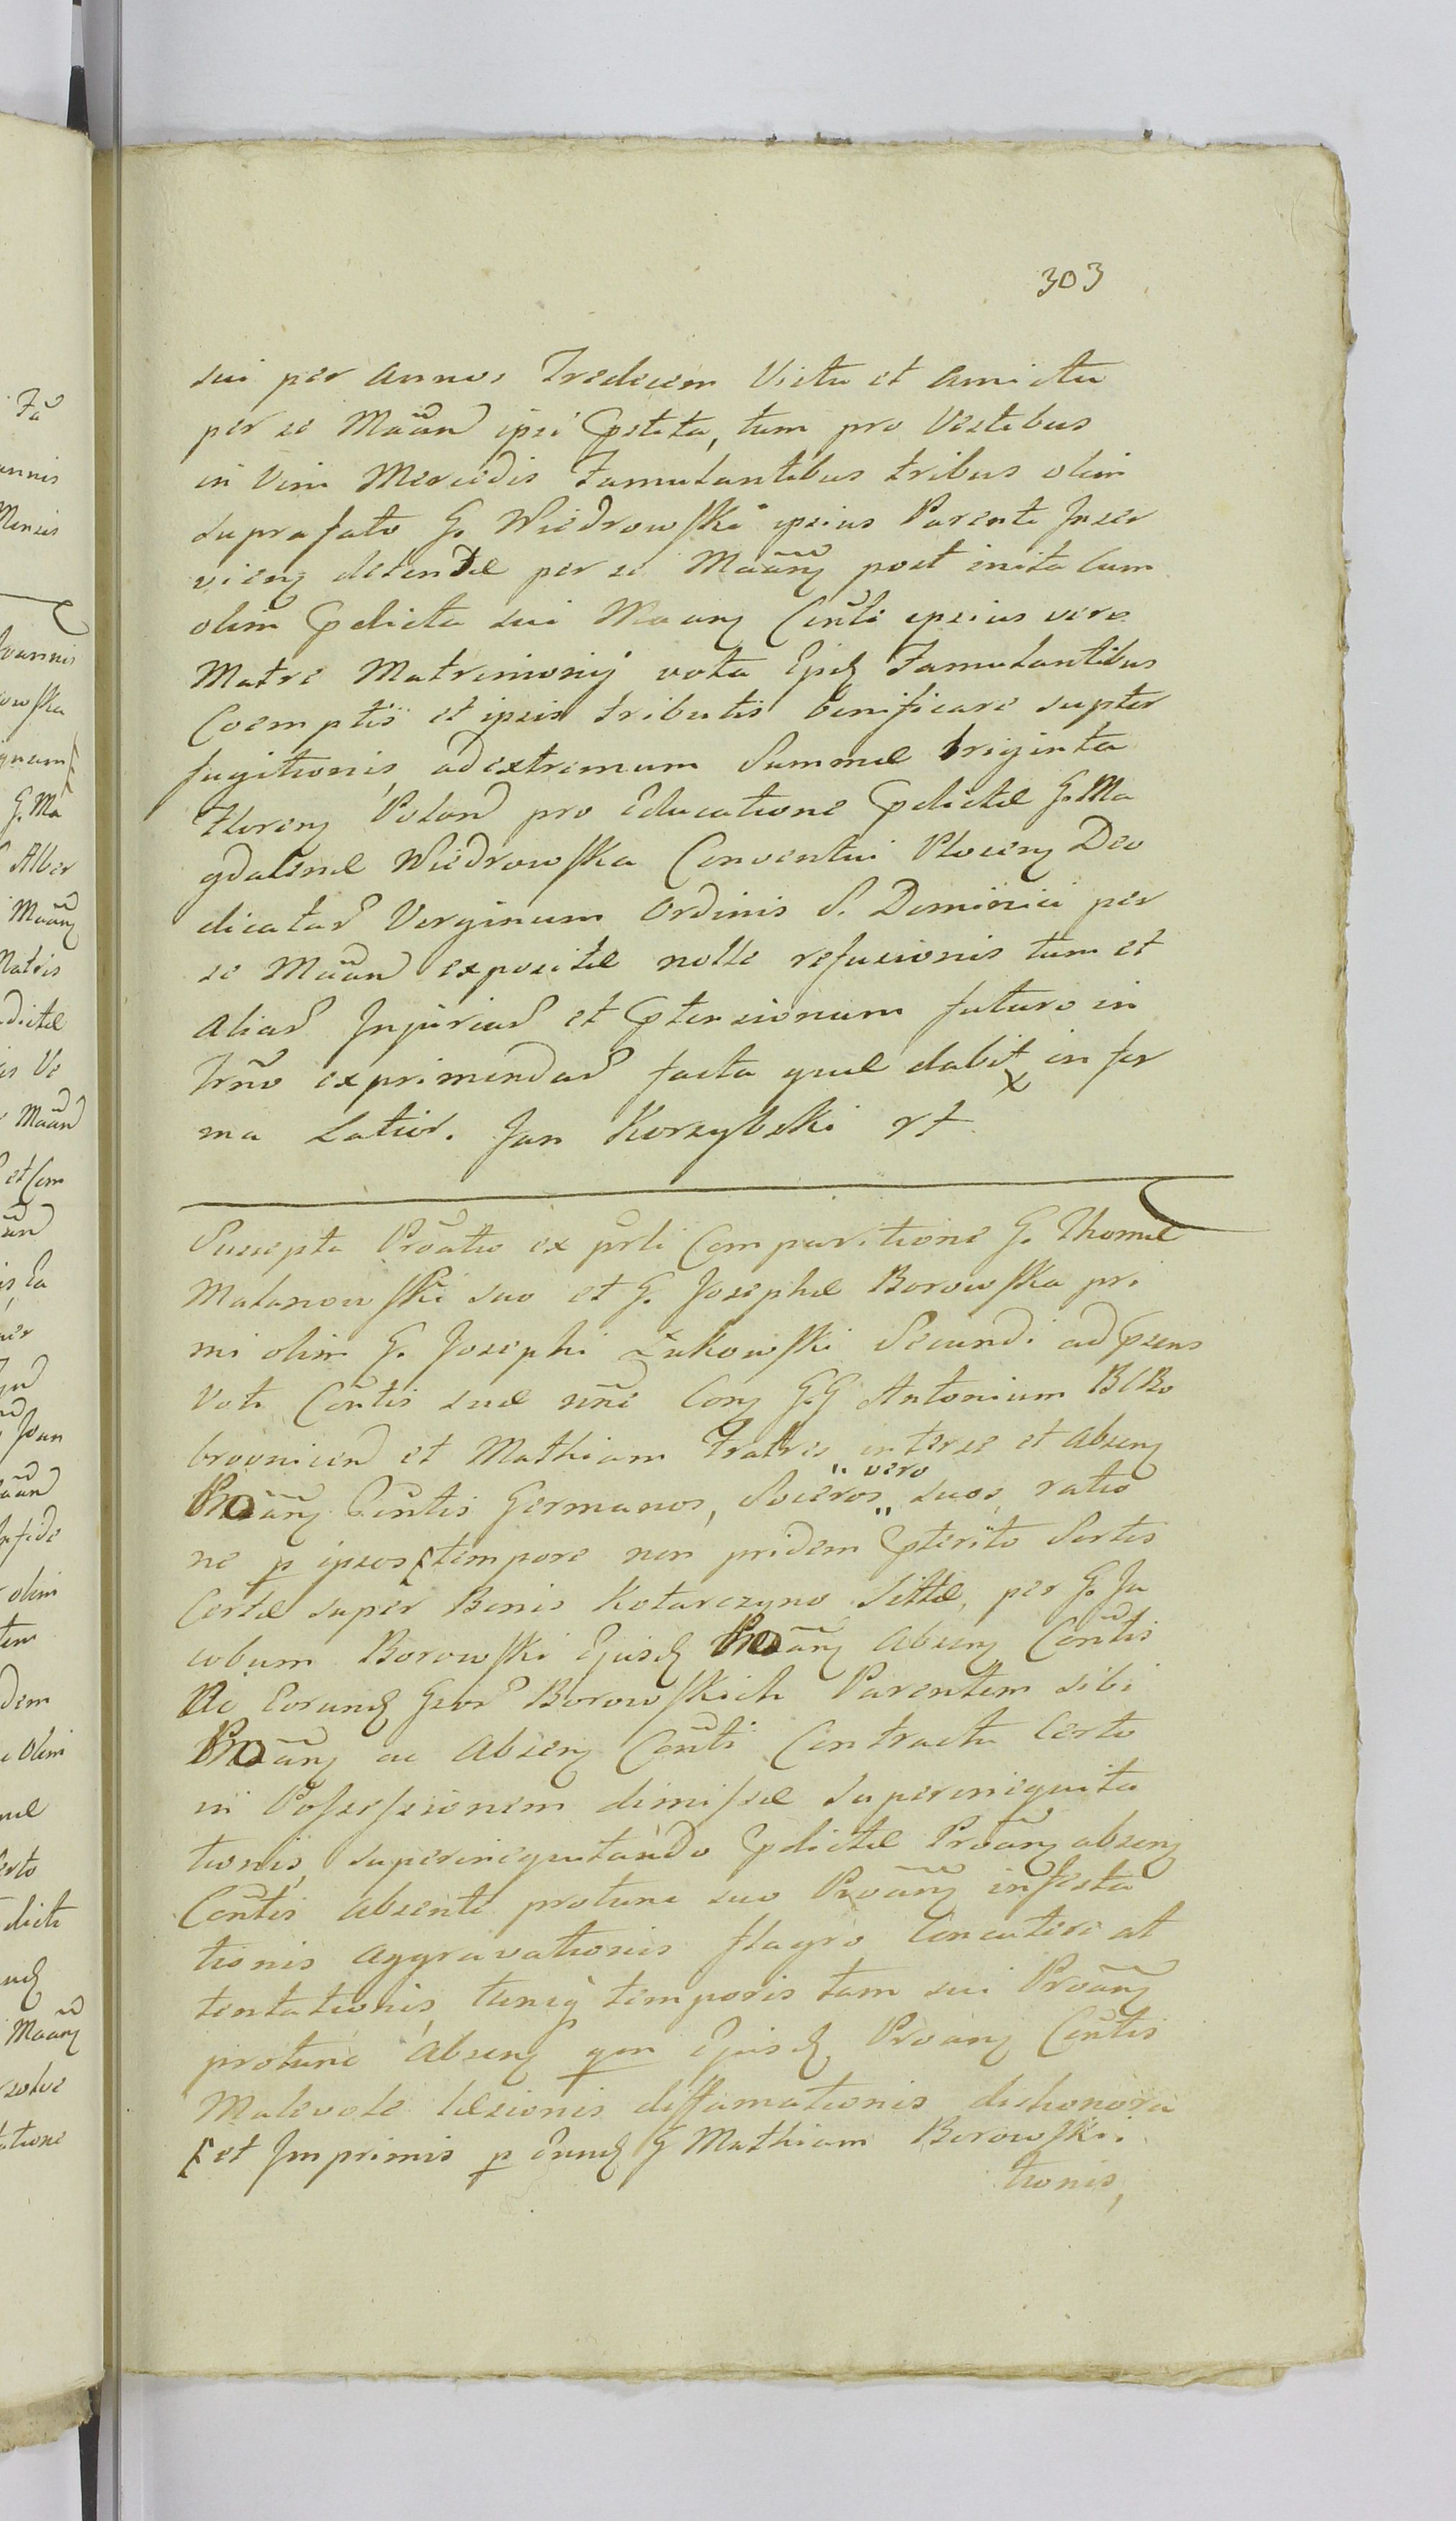 303
sui per annos Tredecem Victu et amictu
per se Mãan ipsi pstita, tum pro Vestibus
in vim Mercedis Famulantibus tribus olim
suprafato G. Wiedrowski ipsius Parenti Inser
vien detentæ per se Mãan post inita cum
olim pdicta sui Maan Conti ipsius vero
Matre Matrimonij vota Ejusd Famulantibus
Coemptis et ipsis tributis benificare supter
fugitionis, ad extremum Summæ triginta
Floren Polon pro Educatione pdictæ G. Ma
gdalenæ Wiedrowska Conventui Plocen Deo
dicatar Verginum Ordinis S. Dominici per
se Mãan expositæ nolle refusionis tum et
aliar Injuriar et ptensionum futuro in
Trño exprimendar facta quæ dabit in for
ma Latior. Jan Korzybski rt
Suscepta Prõatio ex prli Comparitione G. Thomæ
Malanowski suo et G. Josephæ Borowska pri
mi olim G. Josephi Żukowski Secundi ad psens
Voti Cõntis suæ nñe Con G.G Antonium BCBo
brovnicen et Mathiam Fratres interse et absen
Prõan Contis Germanos, Soceros vero suos, ratio
ne p ipsos tempore non pridem pterito Sortis
Certæ super Bonis Kotarczyno Sittæ, per G. Ja
cobum Borowski Ejusd Prõan absen Cõntis
Ac Eorund Gsor Borowskich Parentem sibi
Prõan ac absen Cõnti Contractu Certo
in Possessionem dimissæ superinequita
tionis, superinequitando pdictæ Prõan absen
Cõntis absente protunc suo Prõan infesta
tionis aggravationis flagro Concutere at
tentationis, tuncq temporis tam sui Prõan
protunc absen qm Ejusd Proan Contis
Malevole læsionis diffamationis dishonora
et Imprimis p Eund G Mathiam Borowski
tionis,